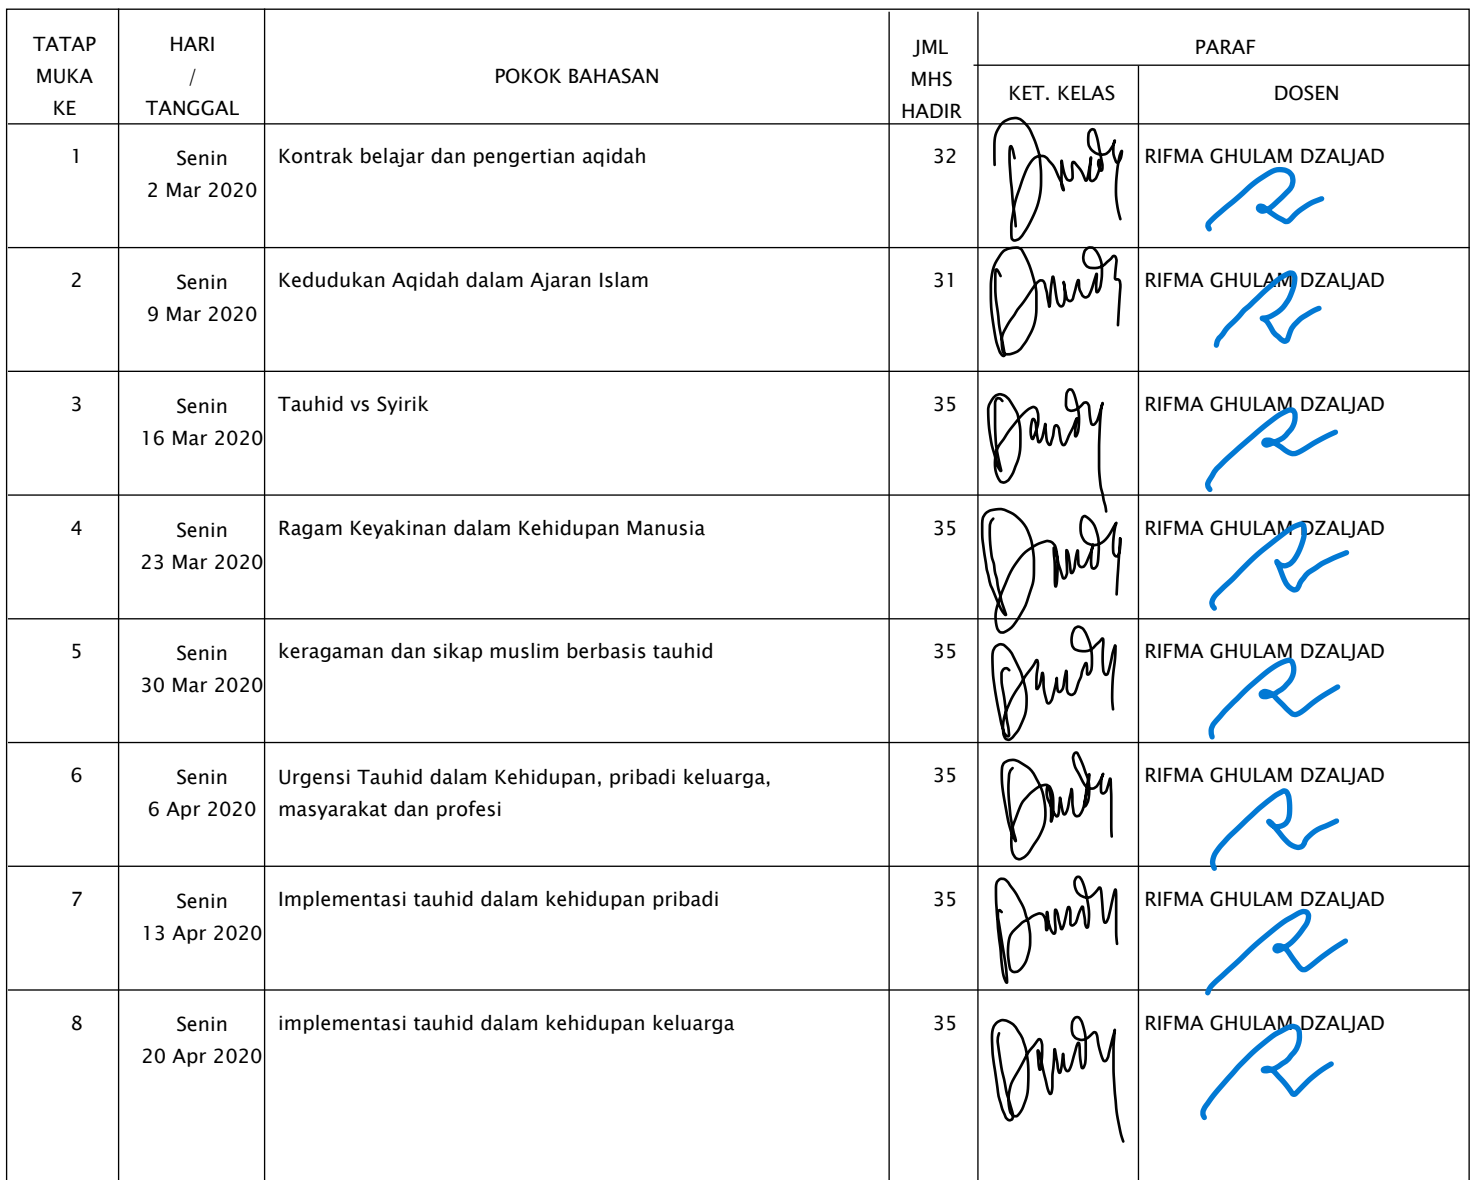 TATAP MUKA KE
HARI / TANGGAL
POKOK BAHASAN
JML MHS HADIR
PARAF
KET. KELAS
DOSEN
1
Senin
2 Mar 2020
Kontrak belajar dan pengertian aqidah
32
RIFMA GHULAM DZALJAD
2
Senin
9 Mar 2020
Kedudukan Aqidah dalam Ajaran Islam
31
RIFMA GHULAM DZALJAD
3
Senin
16 Mar 2020
Tauhid vs Syirik
35
RIFMA GHULAM DZALJAD
4
Senin
23 Mar 2020
Ragam Keyakinan dalam Kehidupan Manusia
35
RIFMA GHULAM DZALJAD
5
Senin
30 Mar 2020
keragaman dan sikap muslim berbasis tauhid
35
RIFMA GHULAM DZALJAD
6
Senin
6 Apr 2020
Urgensi Tauhid dalam Kehidupan, pribadi keluarga,
masyarakat dan profesi
35
RIFMA GHULAM DZALJAD
7
Senin
13 Apr 2020
Implementasi tauhid dalam kehidupan pribadi
35
RIFMA GHULAM DZALJAD
8
Senin
20 Apr 2020
implementasi tauhid dalam kehidupan keluarga
35
RIFMA GHULAM DZALJAD